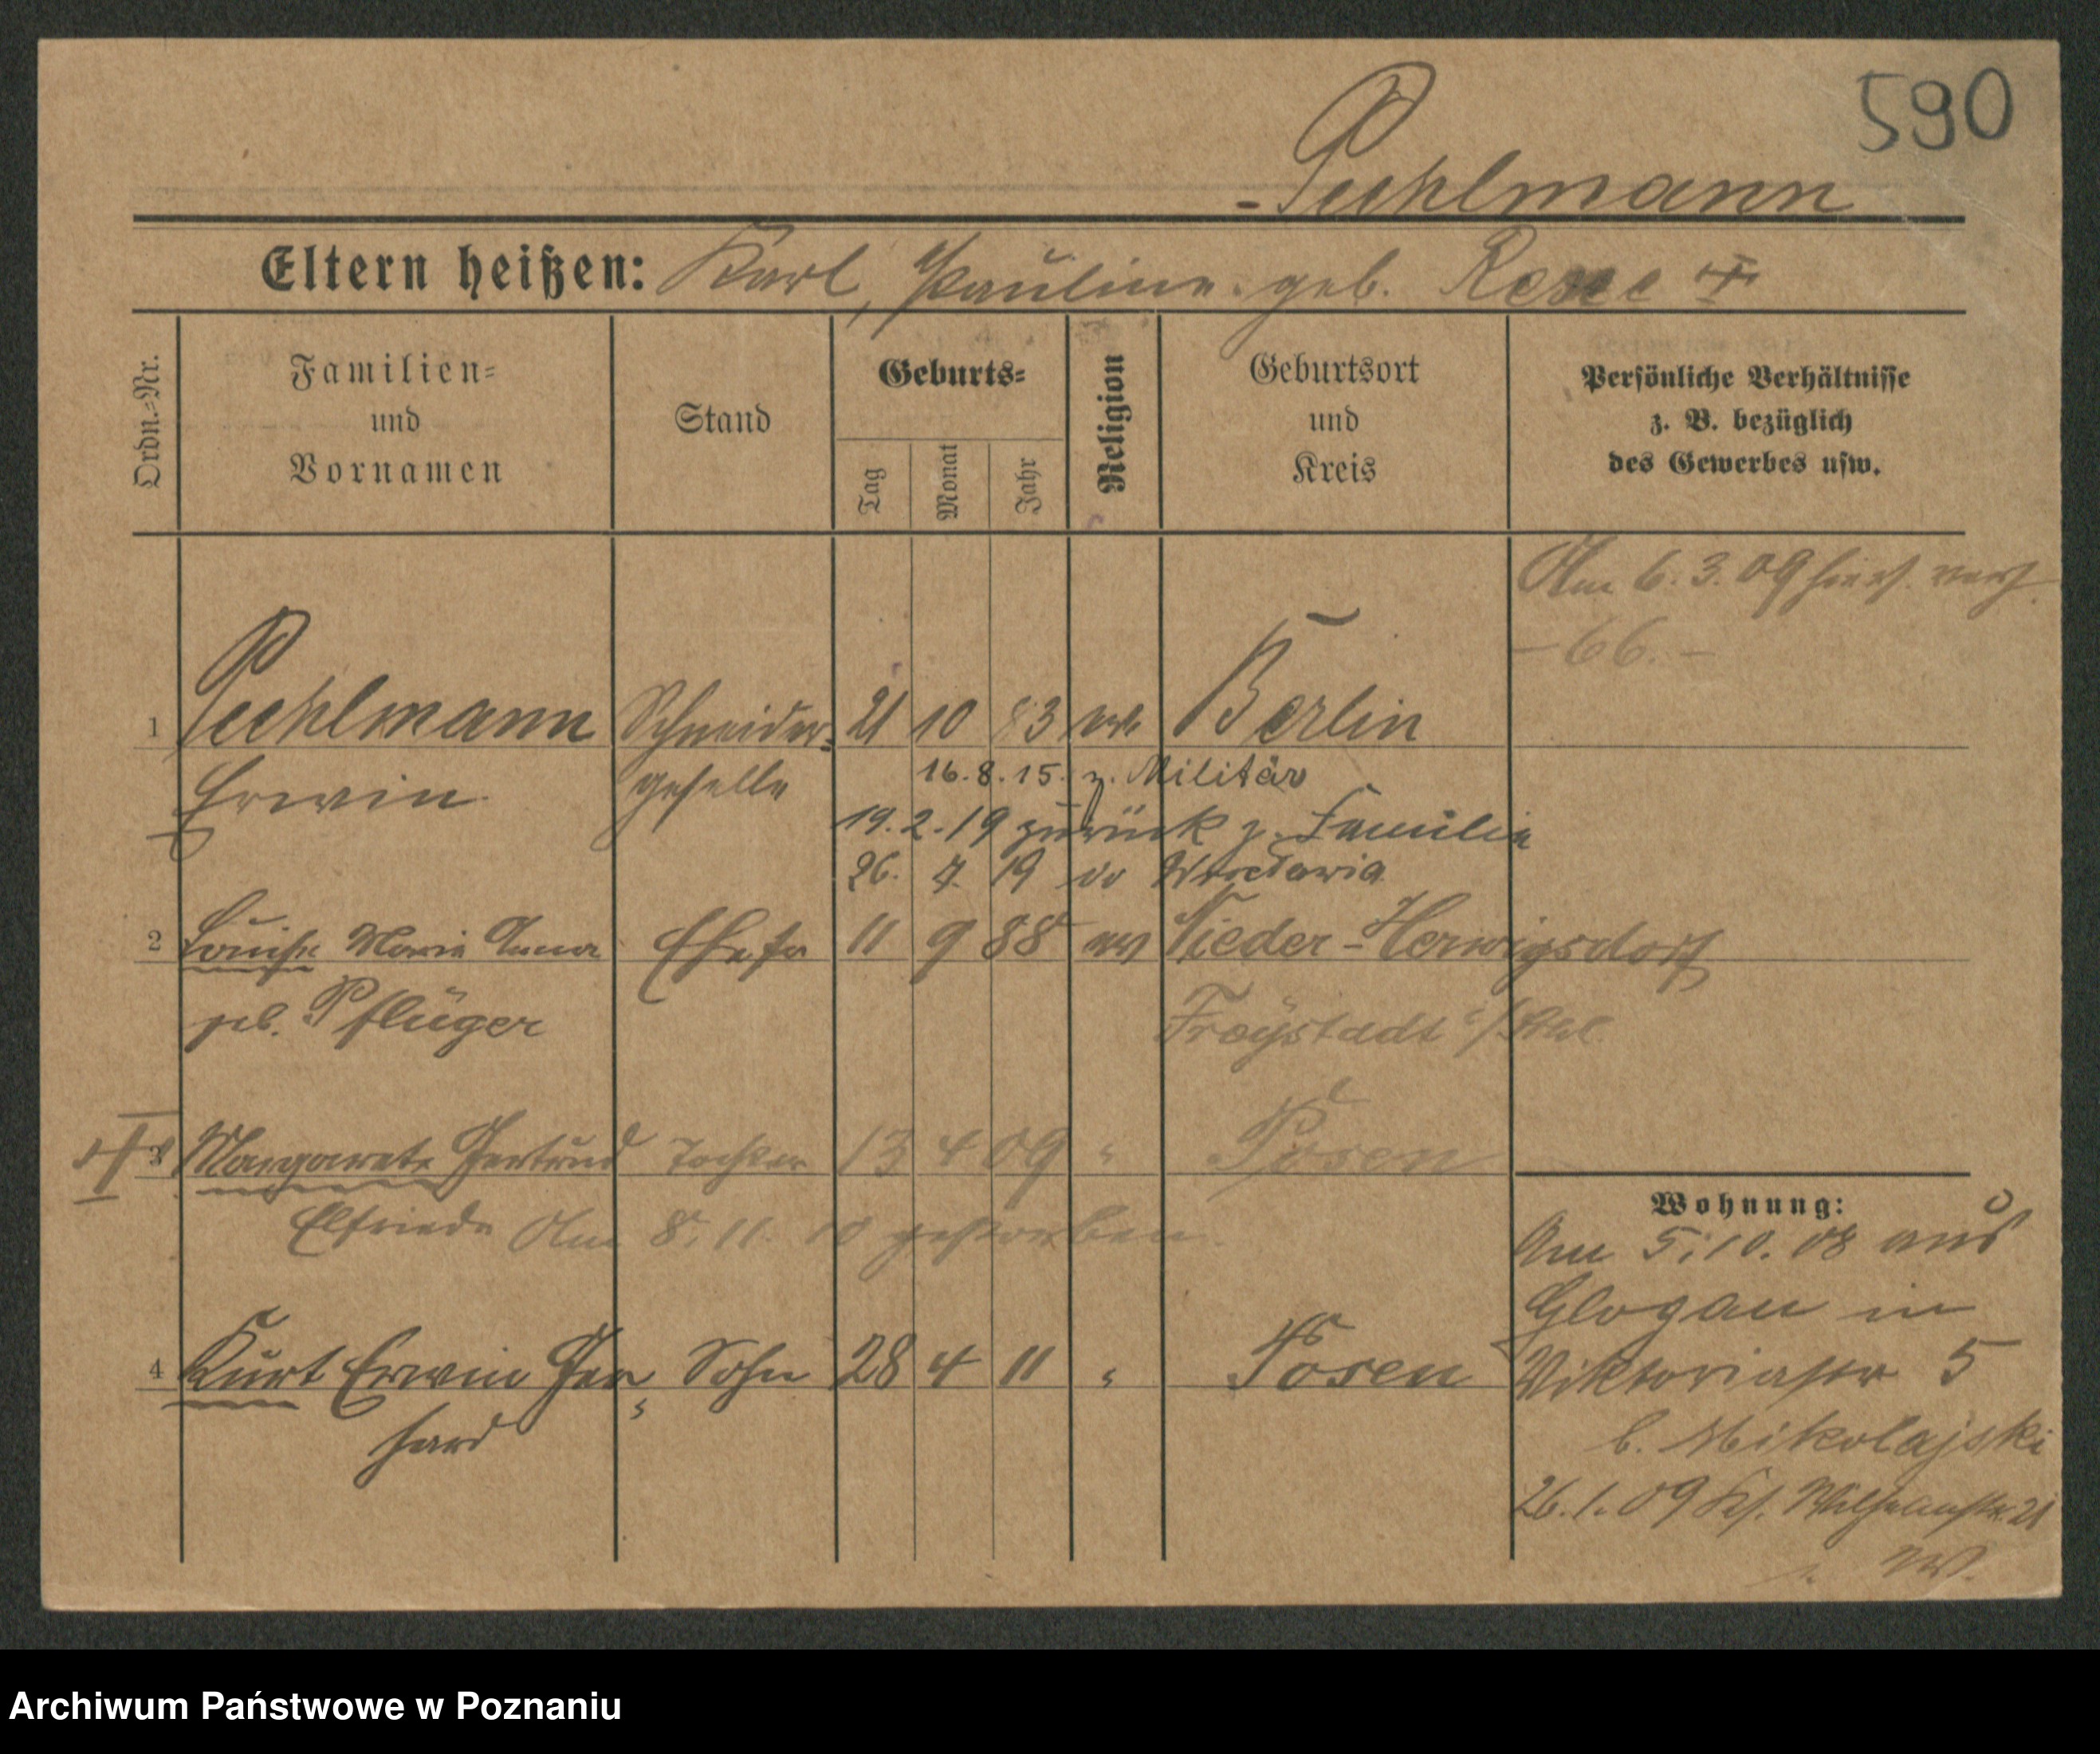 590
Puhlmann
Eltern heißen: Karl, Pauline geb.
Ordn.=Nr.
Familien= und Vornamen
Stand
Geburts=
Tag
Monat
Jahr
Religion
Geburtsort und Kreis
Persönliche Verhältnisse z. B. bezüglich des Gewerbes usw.
Am 6. 3. 09
- 66. -
1 Puhlmann Schneider= 21 10 83 Berlin
Erwin geselle 16. 8. 15. z. Militär
19. 2. 19 zurück z. Familie
26. 7. 19 do Wrocławia
2 Louise Marie Anna Ehefr 11 9 88 ev Nieder-Herwigsdorf
geb. Pflüger Freystadt
3 Margarete Gertrud Tochter 13 4 09 " Posen
Elfriede Am 8. 11. 10 gestorben.
Wohnung:
Am 5. 10. 08 aus
Glogau in
4 Kurt Erwin Ger= Sohn 28 4 11 " Posen
hard
Viktoriastr 5
b. Mikolajski
26. 1. 09 Wilhelmstr. 21
Archiwum Państwowe w Poznaniu